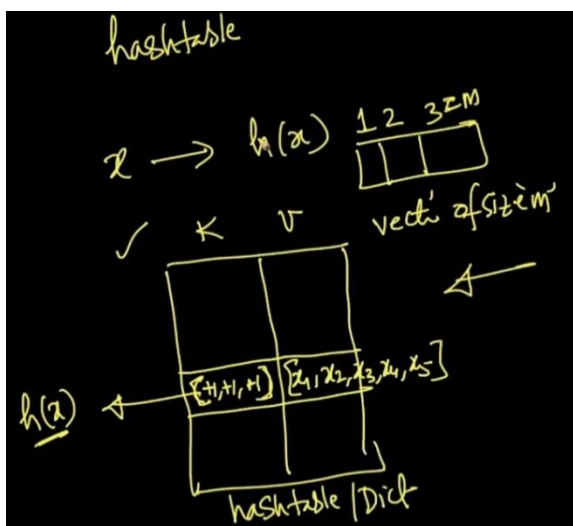 hashtable
x → h(x) 1 2 3=m
vect' of size 'm'
✓ K V
h(x) [+1,+1,+1] [x1,x2,x3,x4,x5]
hashtable/Dict